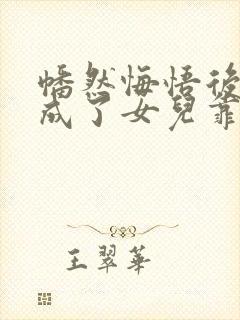 幡然悔悟後
成了女兒靠
王翠華